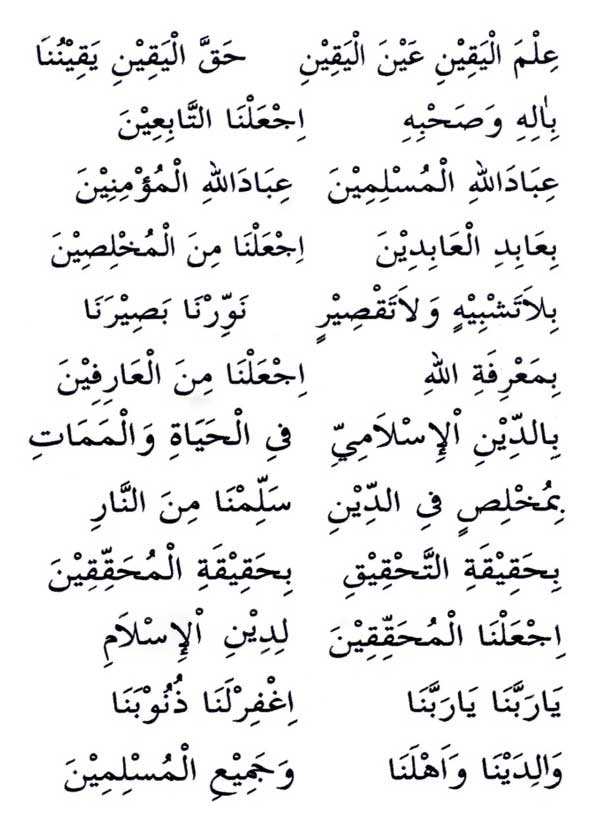 عِلْمَ الْيَقِيْنِ عَيْنَ الْيَقِيْنِ حَقَّ الْيَقِيْنِ يَقِيْنُنَا
بِاٰلِهِ وَصَحْبِهِ اِجْعَلْنَا التَّابِعِيْنَ
عِبَادَاللهِ الْمُسْلِمِيْنَ عِبَادَاللهِ الْمُؤْمِنِيْنَ
بِعَابِدِ الْعَابِدِيْنَ اِجْعَلْنَا مِنَ الْمُخْلِصِيْنَ
بِلاَتَشْبِيْهٍ وَلاَتَقْصِيْرٍ نَوِّرْنَا بَصِيْرَنَا
بِمَعْرِفَةِ اللهِ اِجْعَلْنَا مِنَ الْعَارِفِيْنَ
بِالدِّيْنِ الْإِسْلاَمِيِّ فِي الْحَيَاةِ وَالْمَمَاتِ
بِمُخْلِصٍ فِي الدِّيْنِ سَلِّمْنَا مِنَ النَّارِ
بِحَقِيْقَةِ التَّحْقِيْقِ بِحَقِيْقَةِ الْمُحَقِّقِيْنَ
اِجْعَلْنَا الْمُحَقِّقِيْنَ لِدِيْنِ الْإِسْلاَمِ
يَارَبَّنَا يَارَبَّنَا اِغْفِرْلَنَا ذُنُوْبَنَا
وَالِدَيْنَا وَاَهْلَنَا وَجَمِيْعِ الْمُسْلِمِيْنَ